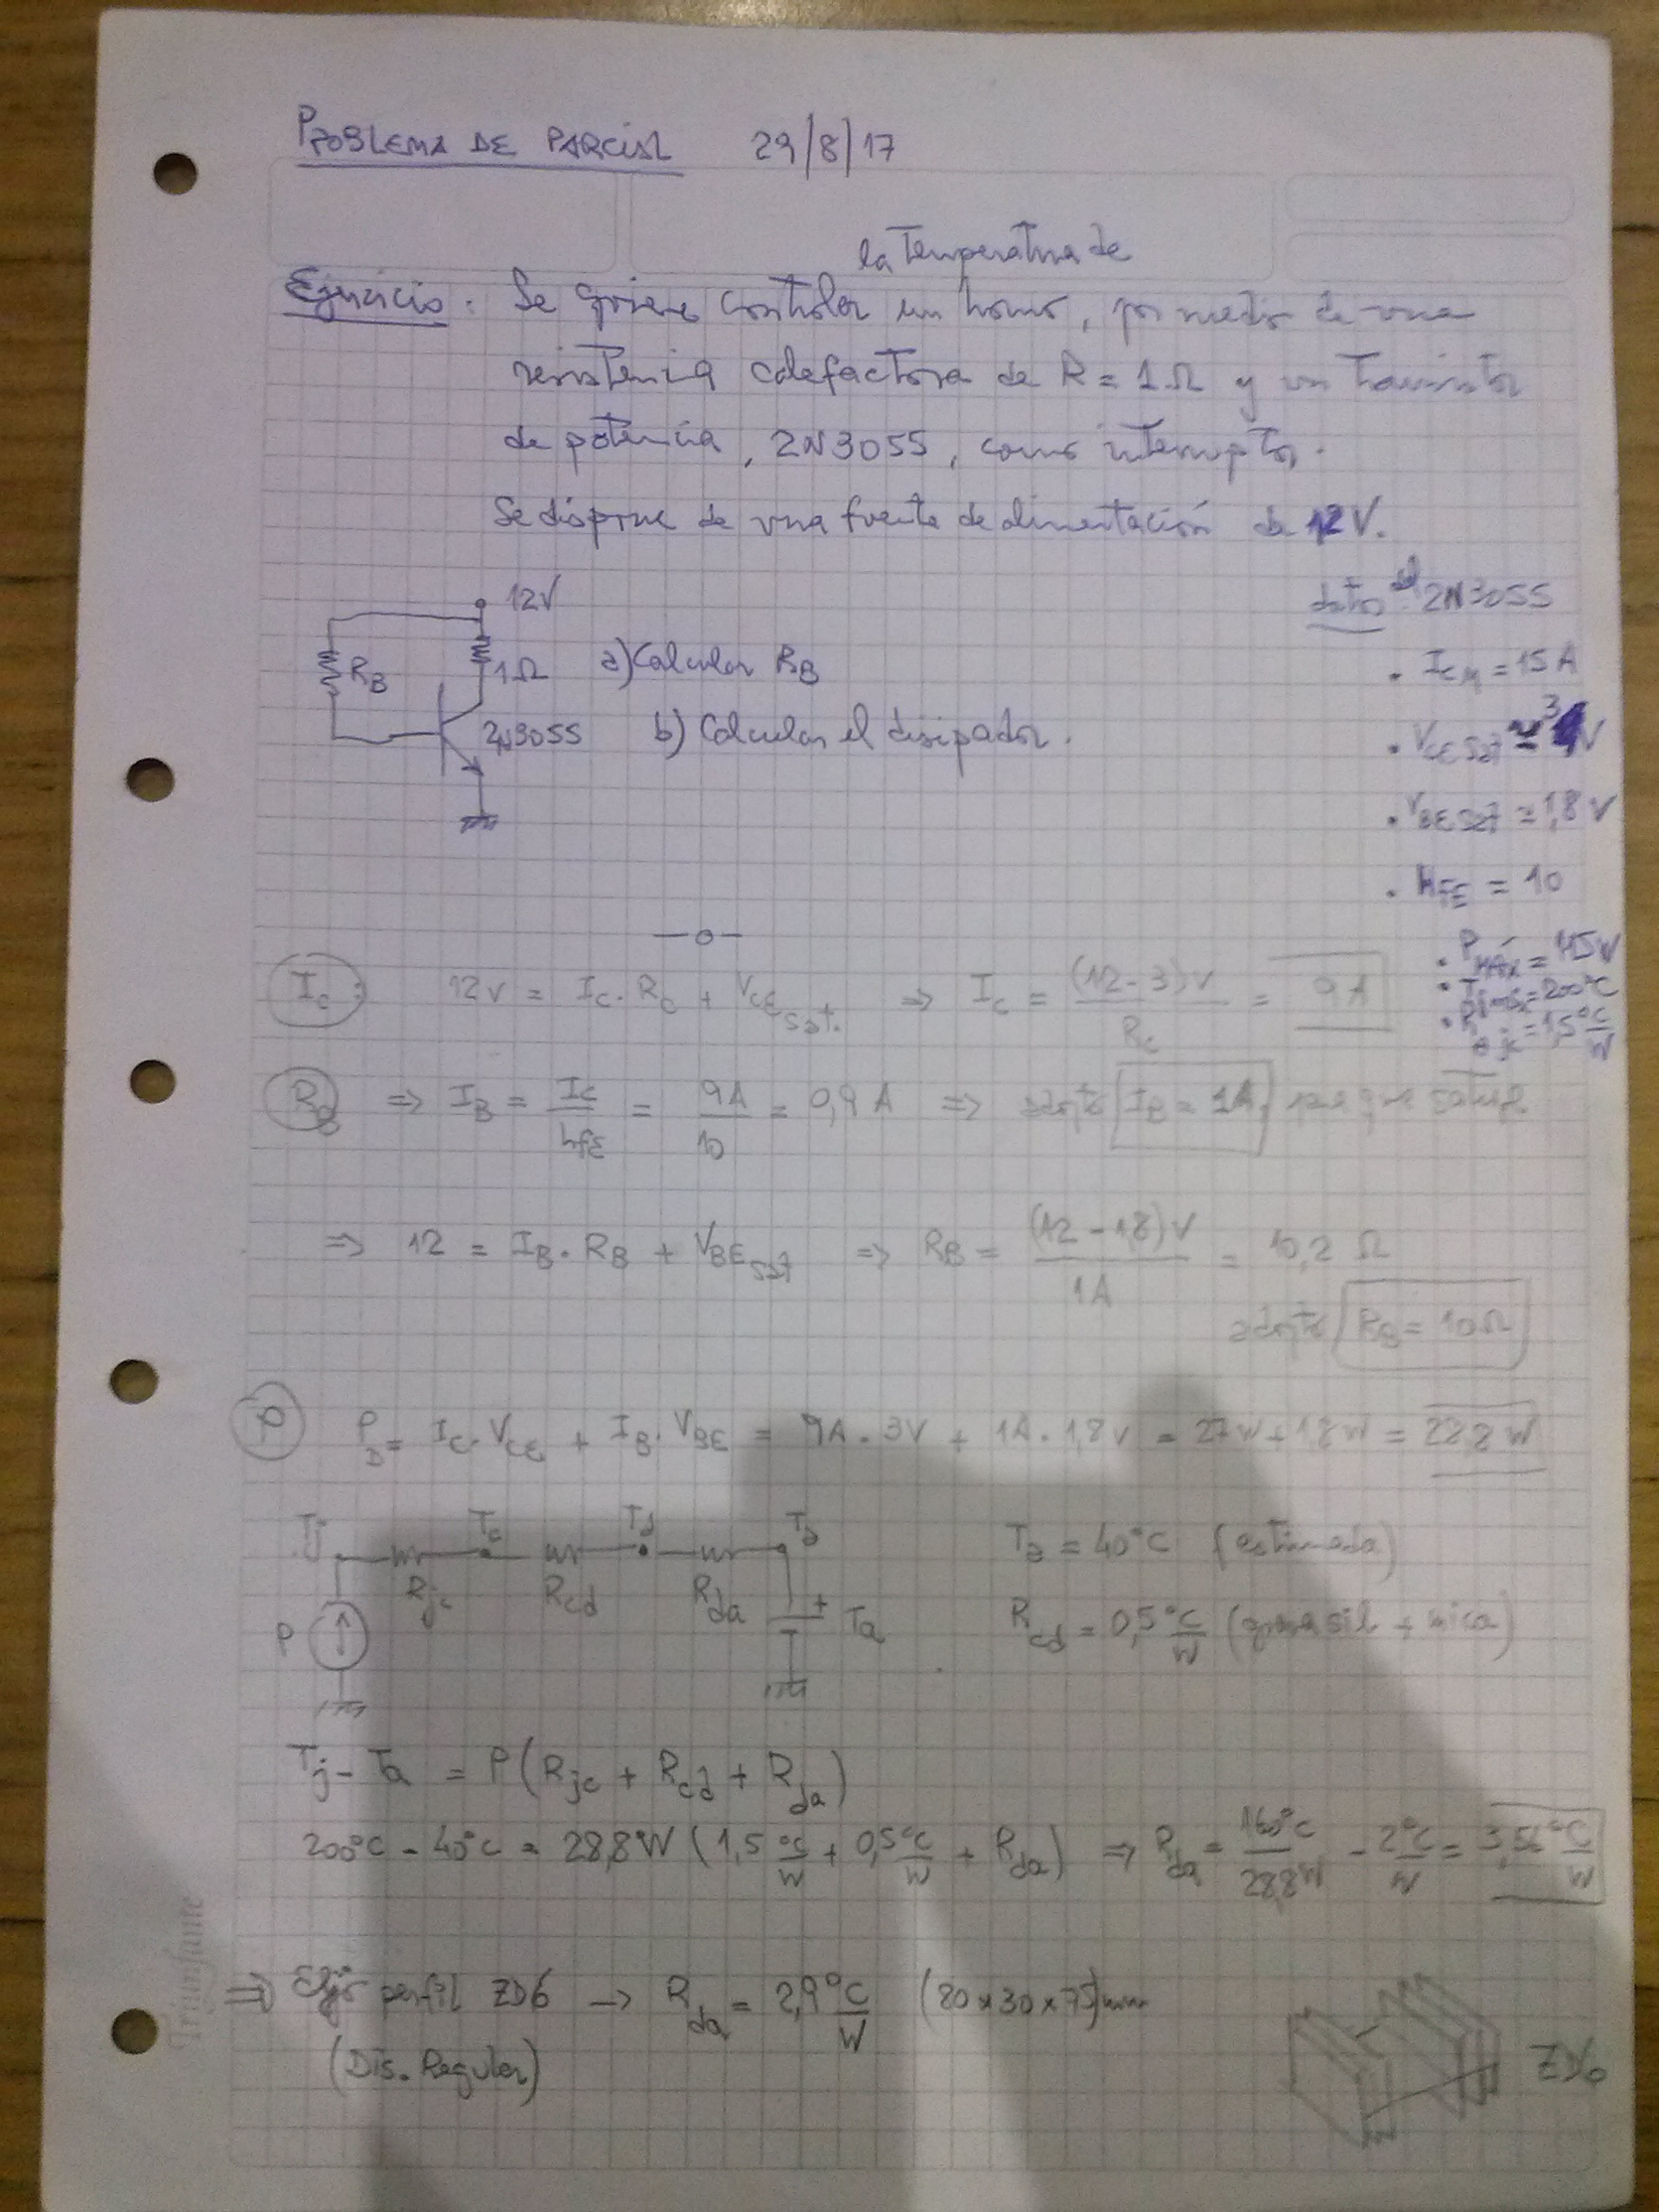 PROBLEMA DE PARCIAL 29/8/17
la temperatura de
Ejercicio: Se quiere controlar un horno, por medio de una
resistencia calefactora de R = 1 Ω y un transistor
de potencia, 2N3055, como interruptor.
Se dispone de una fuente de alimentación de 12V.
12V
RB
1Ω
2N3055
a) Calcular RB
b) Calcular el disipador.
datos del 2N3055
• ICM = 15 A
• VCE sat ≃ 3V
• VBE sat = 1,8 V
• HFE = 10
• PMÁX = 115W
• Tjmáx = 200°C
• Rθjc = 1,5 °C/W
—o—
IC: 12V = IC . RC + VCE sat. ⇒ IC = (12-3)V / RC = 9A
RB ⇒ IB = IC / hFE = 9A / 10 = 0,9 A ⇒ adopto IB = 1A, para que sature.
⇒ 12 = IB . RB + VBE sat ⇒ RB = (12 - 1,8)V / 1A = 10,2 Ω
adopto RB = 10Ω
P PD = IC . VCE + IB . VBE = 9A . 3V + 1A . 1,8V = 27W + 1,8W = 28,8 W
Tj Tc Td Ta
Rjc Rcd Rda
P
+ Ta
Ta = 40°C (estimada)
Rcd = 0,5 °C/W (grasa sil + mica)
Tj - Ta = P (Rjc + Rcd + Rda)
200°C - 40°C = 28,8W (1,5 °C/W + 0,5 °C/W + Rda) ⇒ Rda = 160°C / 28,8W - 2 °C/W = 3,56 °C/W
⇒ Elijo perfil ZD6 → Rda = 2,9 °C/W (80 x 30 x 75)mm
(Dis. Reguler)
ZD6
Triunfante